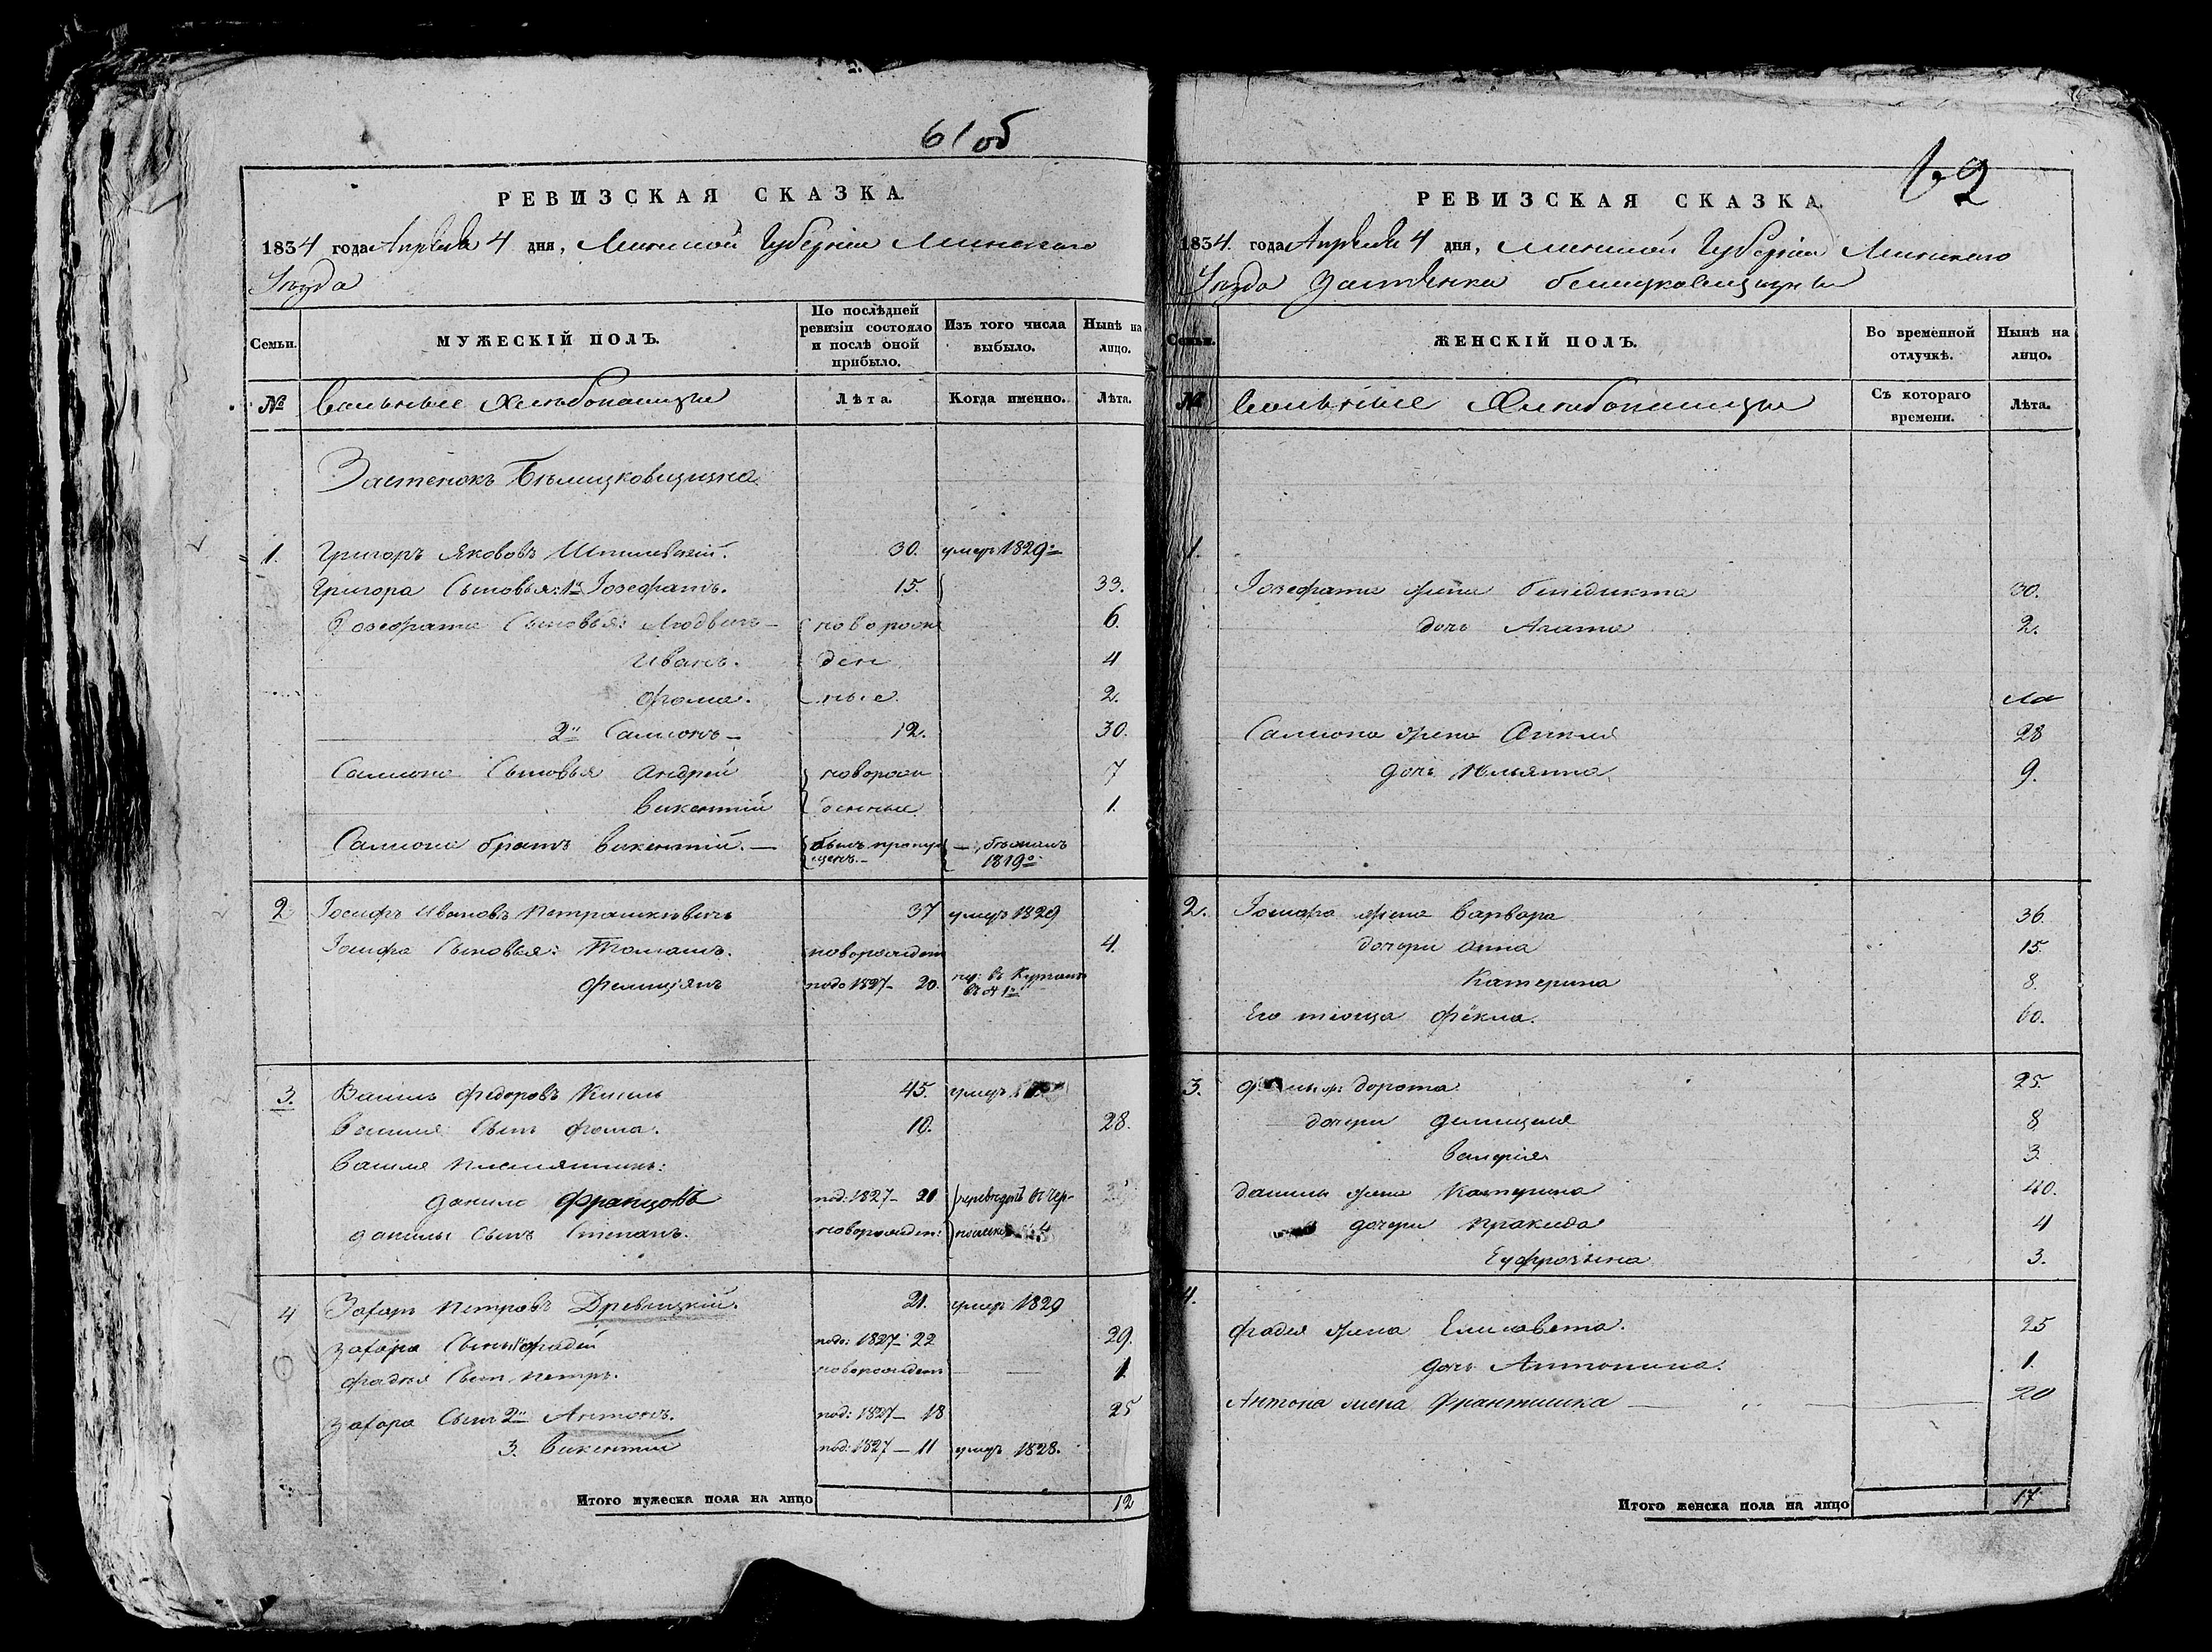 61 об
РЕВИЗСКАЯ СКАЗКА.
1834 года Апреля 4 дня, Минской Губерніи Минского
Уезда
Семьи.
МУЖЕСКІЙ ПОЛЪ.
По послѣдней ревизіи состояло и послѣ оной прибыло.
Изъ того числа выбыло.
Нынѣ на лицо.
№
Вольные Хлебопашцы
Лѣта.
Когда именно.
Лѣта.
Застенокъ Бѣлицковщизна
1. Григоръ Яковъ Шпилевскій. 30. умеръ 1829го
Григора Сыновья: 1й Іозефатъ. 15. 33.
Іозефата Сыновья: Людвигъ — новорож 6.
Иванъ. ден 4
Фома. ные 2.
2й Самсонъ — 12. 30.
Самсона Сыновья Андрей новорож 7
Викентій денные 1.
Самсона братъ Викентій. — былъ пропущенъ. — 1819го
2 Іосифъ Ивановъ Петрашкевичъ 37 умеръ 1829
Іосифа Сыновья: Томашъ. новорожден 4.
Фелиціянъ подо 1827 — 20.
3. Василь Федоровъ Кисель 45. умеръ
Василя Сынъ Фома. 10. 28.
Василя племянникъ:
Данило Францовъ под: 1827 — 20
Данилы Сынъ Степанъ. новорожден:
4 Захаръ Петровъ Древицкій. 21. умеръ 1829
Захара Сынъ 1й Фадей подо: 1827 — 22 29.
Фадея Сынъ Петръ. новорожден 1
Захара Сынъ 2й Антонъ. под: 1827 — 18 25
3. Викентій под: 1827 — 11 умеръ 1828.
Итого мужеска пола на лицо 12
62
РЕВИЗСКАЯ СКАЗКА.
1834. года Апреля 4 дня, Минской Губерніи Минского
Уезда Застѣнка Белицковщизны
Семьи.
ЖЕНСКІЙ ПОЛЪ.
Во временной отлучкѣ.
Нынѣ на лицо.
№
Вольные Хлебопашцы
Съ котораго времени.
Лѣта.
1.
Іозефата жена Бенедикта 30.
дочь Агата 2.
Самсона жена Анеля 28
дочь Ульянна 9.
2. Іосифа жена Варвара 36.
дочери Анна 15.
Катерина 8.
Его тіоща Фёкла. 60.
3. Дорота 25.
дочери Фелицыя 8
Валерія 3
Данилы жена Катерина 40.
дочери Пракседа 4
Еуфрозына 3.
4.
Фадея жена Елисавета. 25
дочь Антонина. 1.
Антона жена Франтишка — 20
Итого женска пола на лицо 17